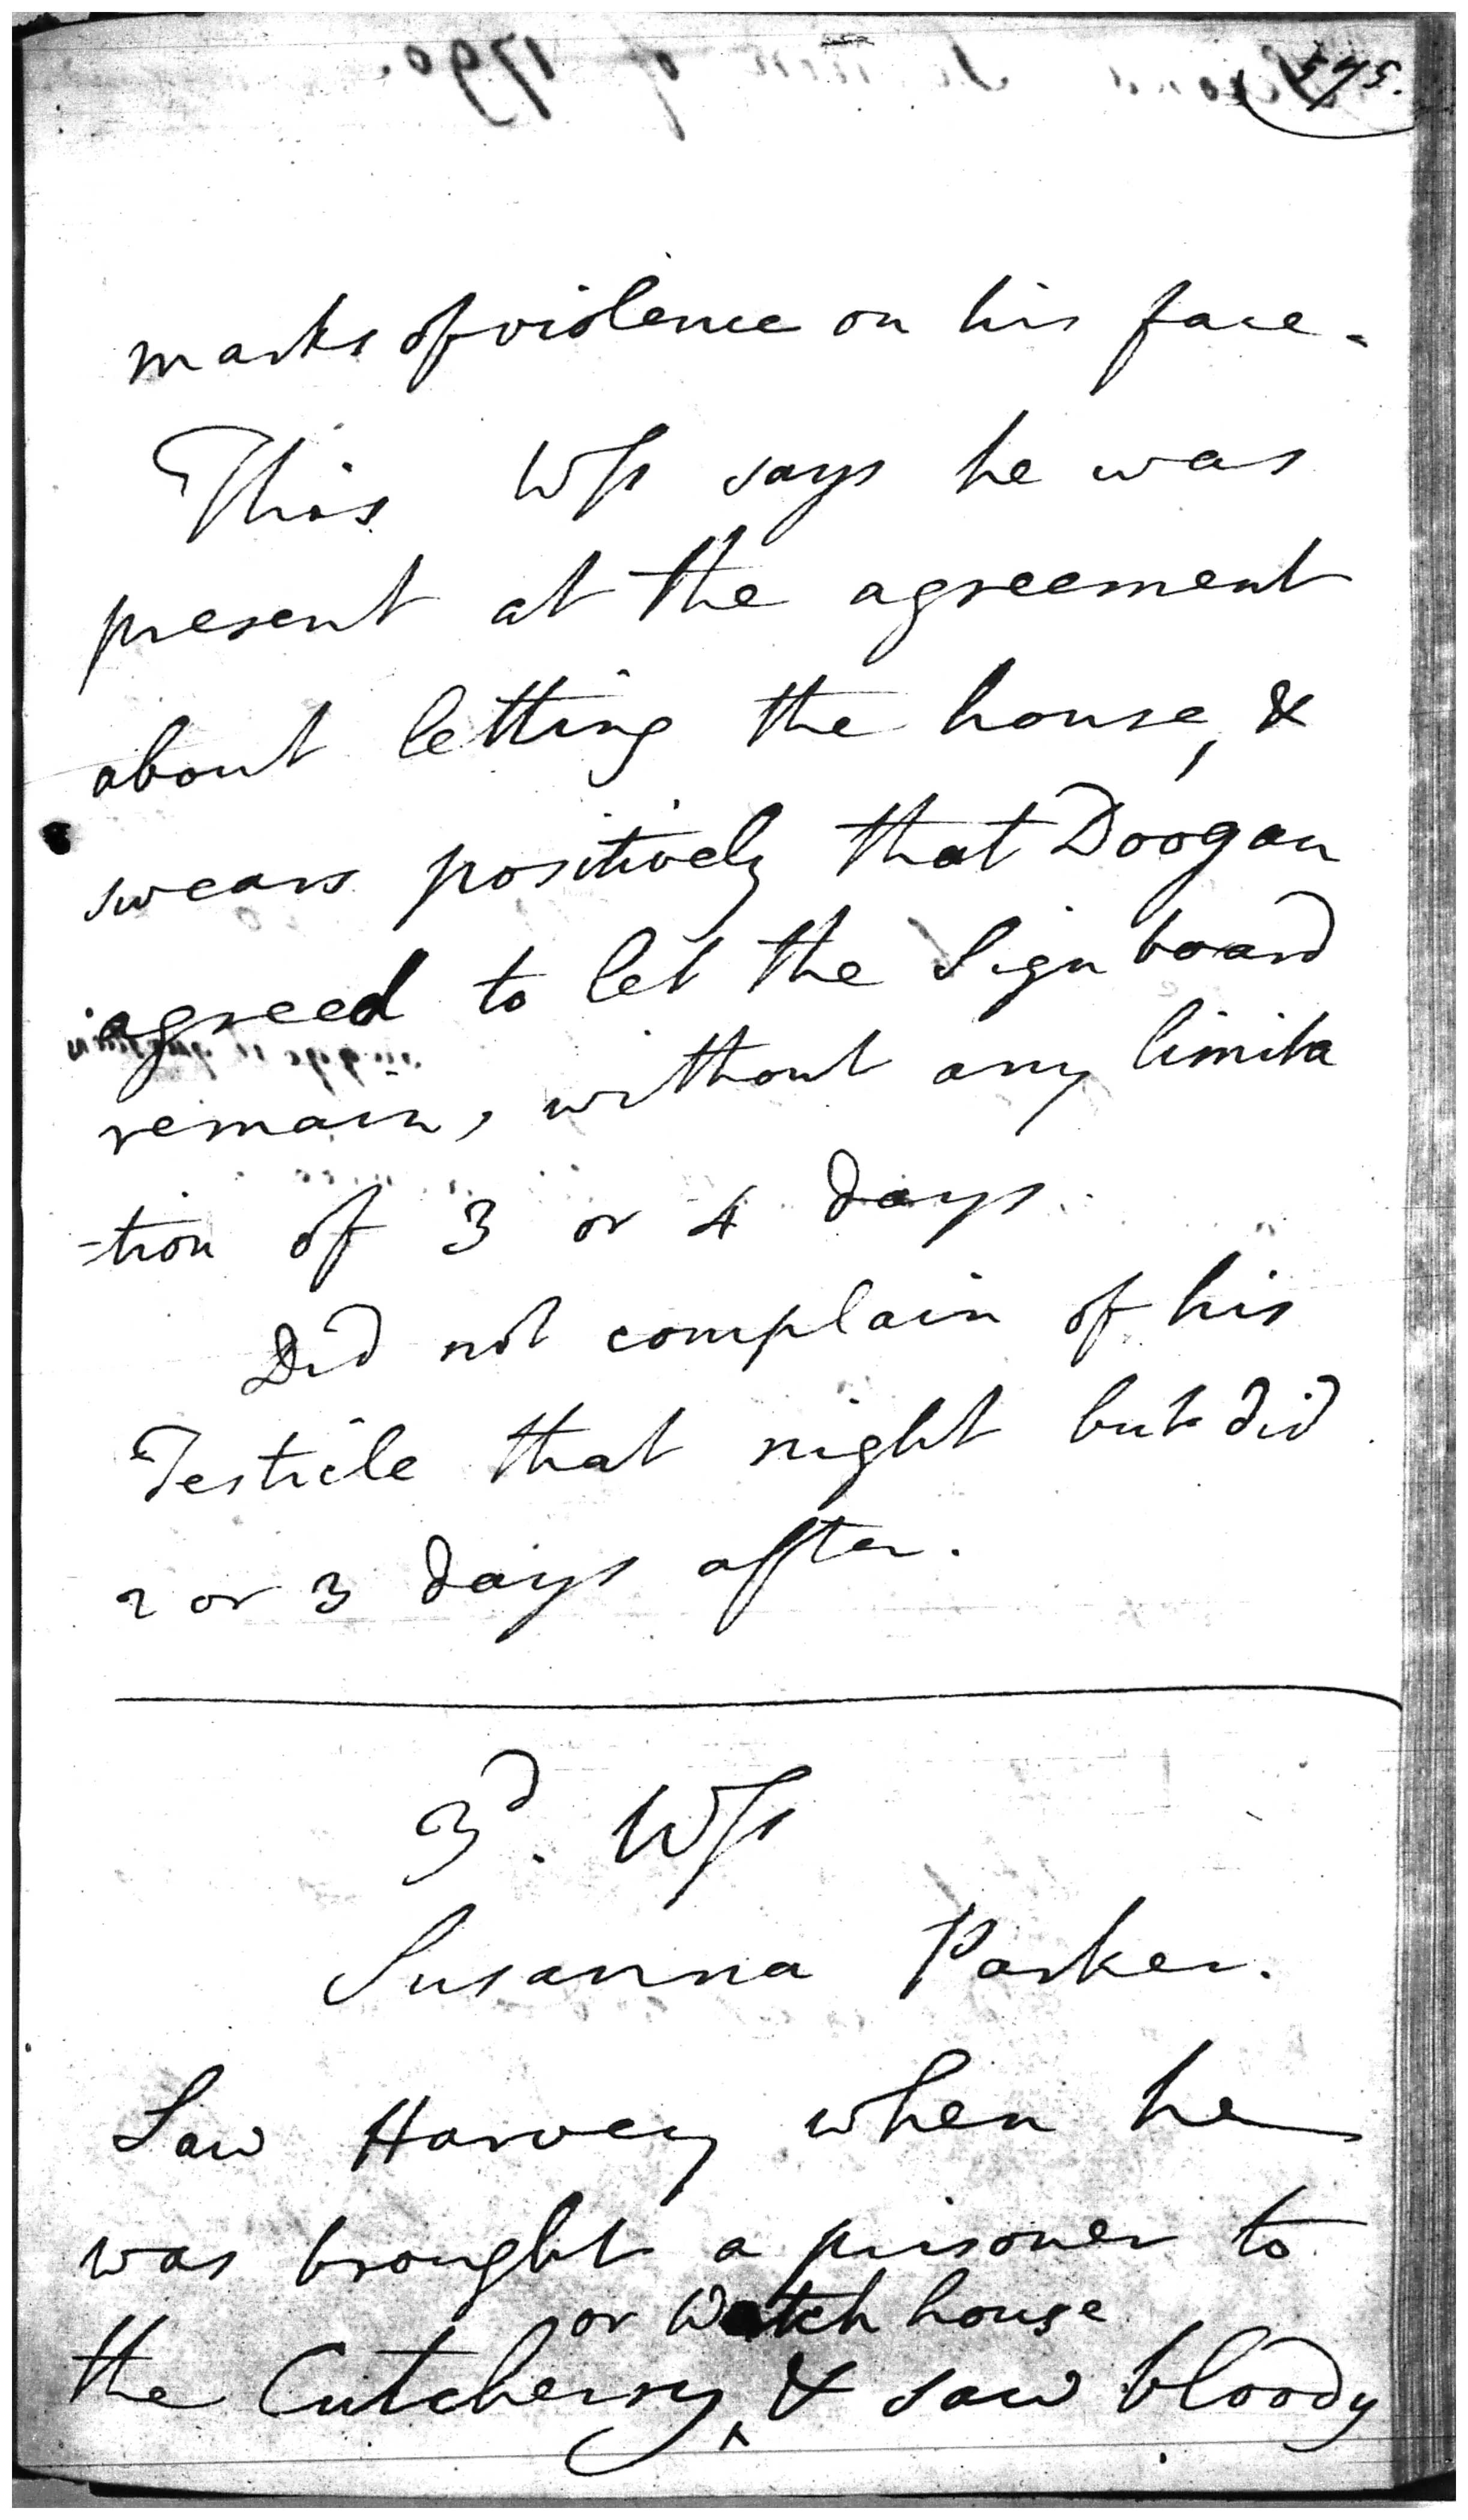 575.
marks of violence on his face.
This Wss says he was
present at the agreement
about letting the house, &
swears positively that Doogan
agreed to let the Sign board
remain, without any limita
=tion of 3 or 4 days.
Did not complain of his
Testicle that night but did
2 or 3 days after.
3d. Wss
Susanna Parker.
Saw Harvey when he
was brought a prisoner to
or Watch house
the Cutcherry, & saw bloody